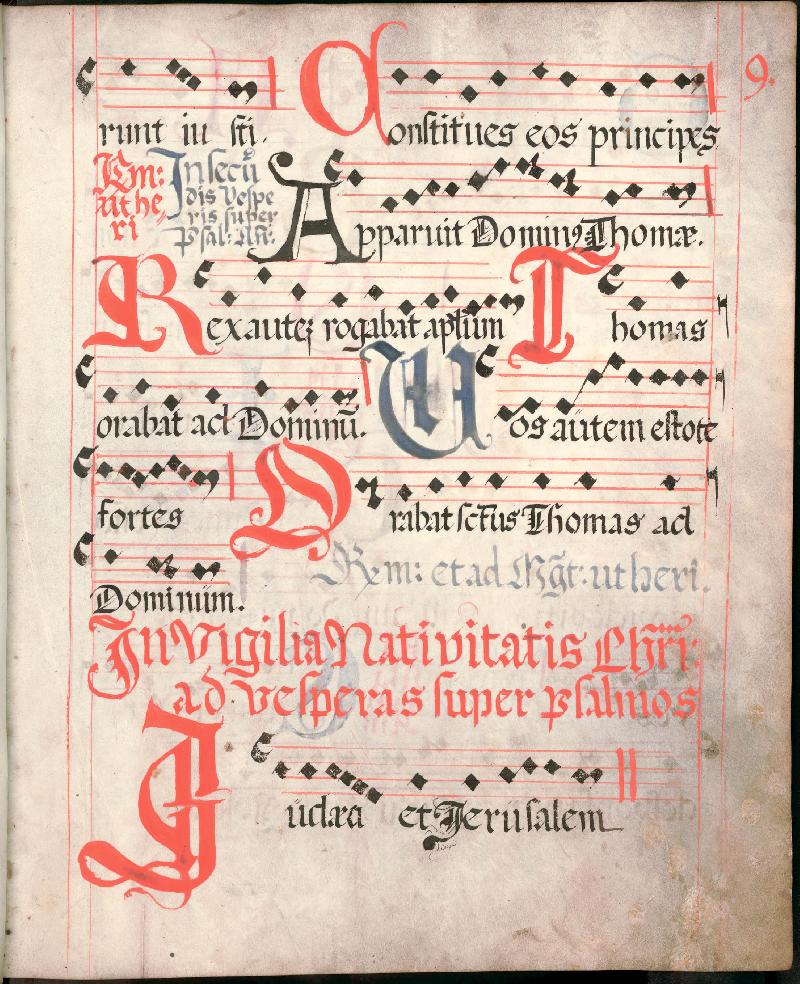 9.
runt in sti. Constitues eos principes
Hym: ut he,
ri
In secū
dis Vespe
ris super
Psal: Añ:
Apparuit Dominꝰ Thomæ.
Rex auteʒ rogabat aplūm Thomas
orabat ad Dominū. Uos autem estote
fortes Orabat sctus Thomas ad
Dominum. Hym: et ad Mg̃t: ut heri.
In Vigilia Nativitatis Chr̃i
ad vesperas super psalmos
Iudæa et Jerusalem